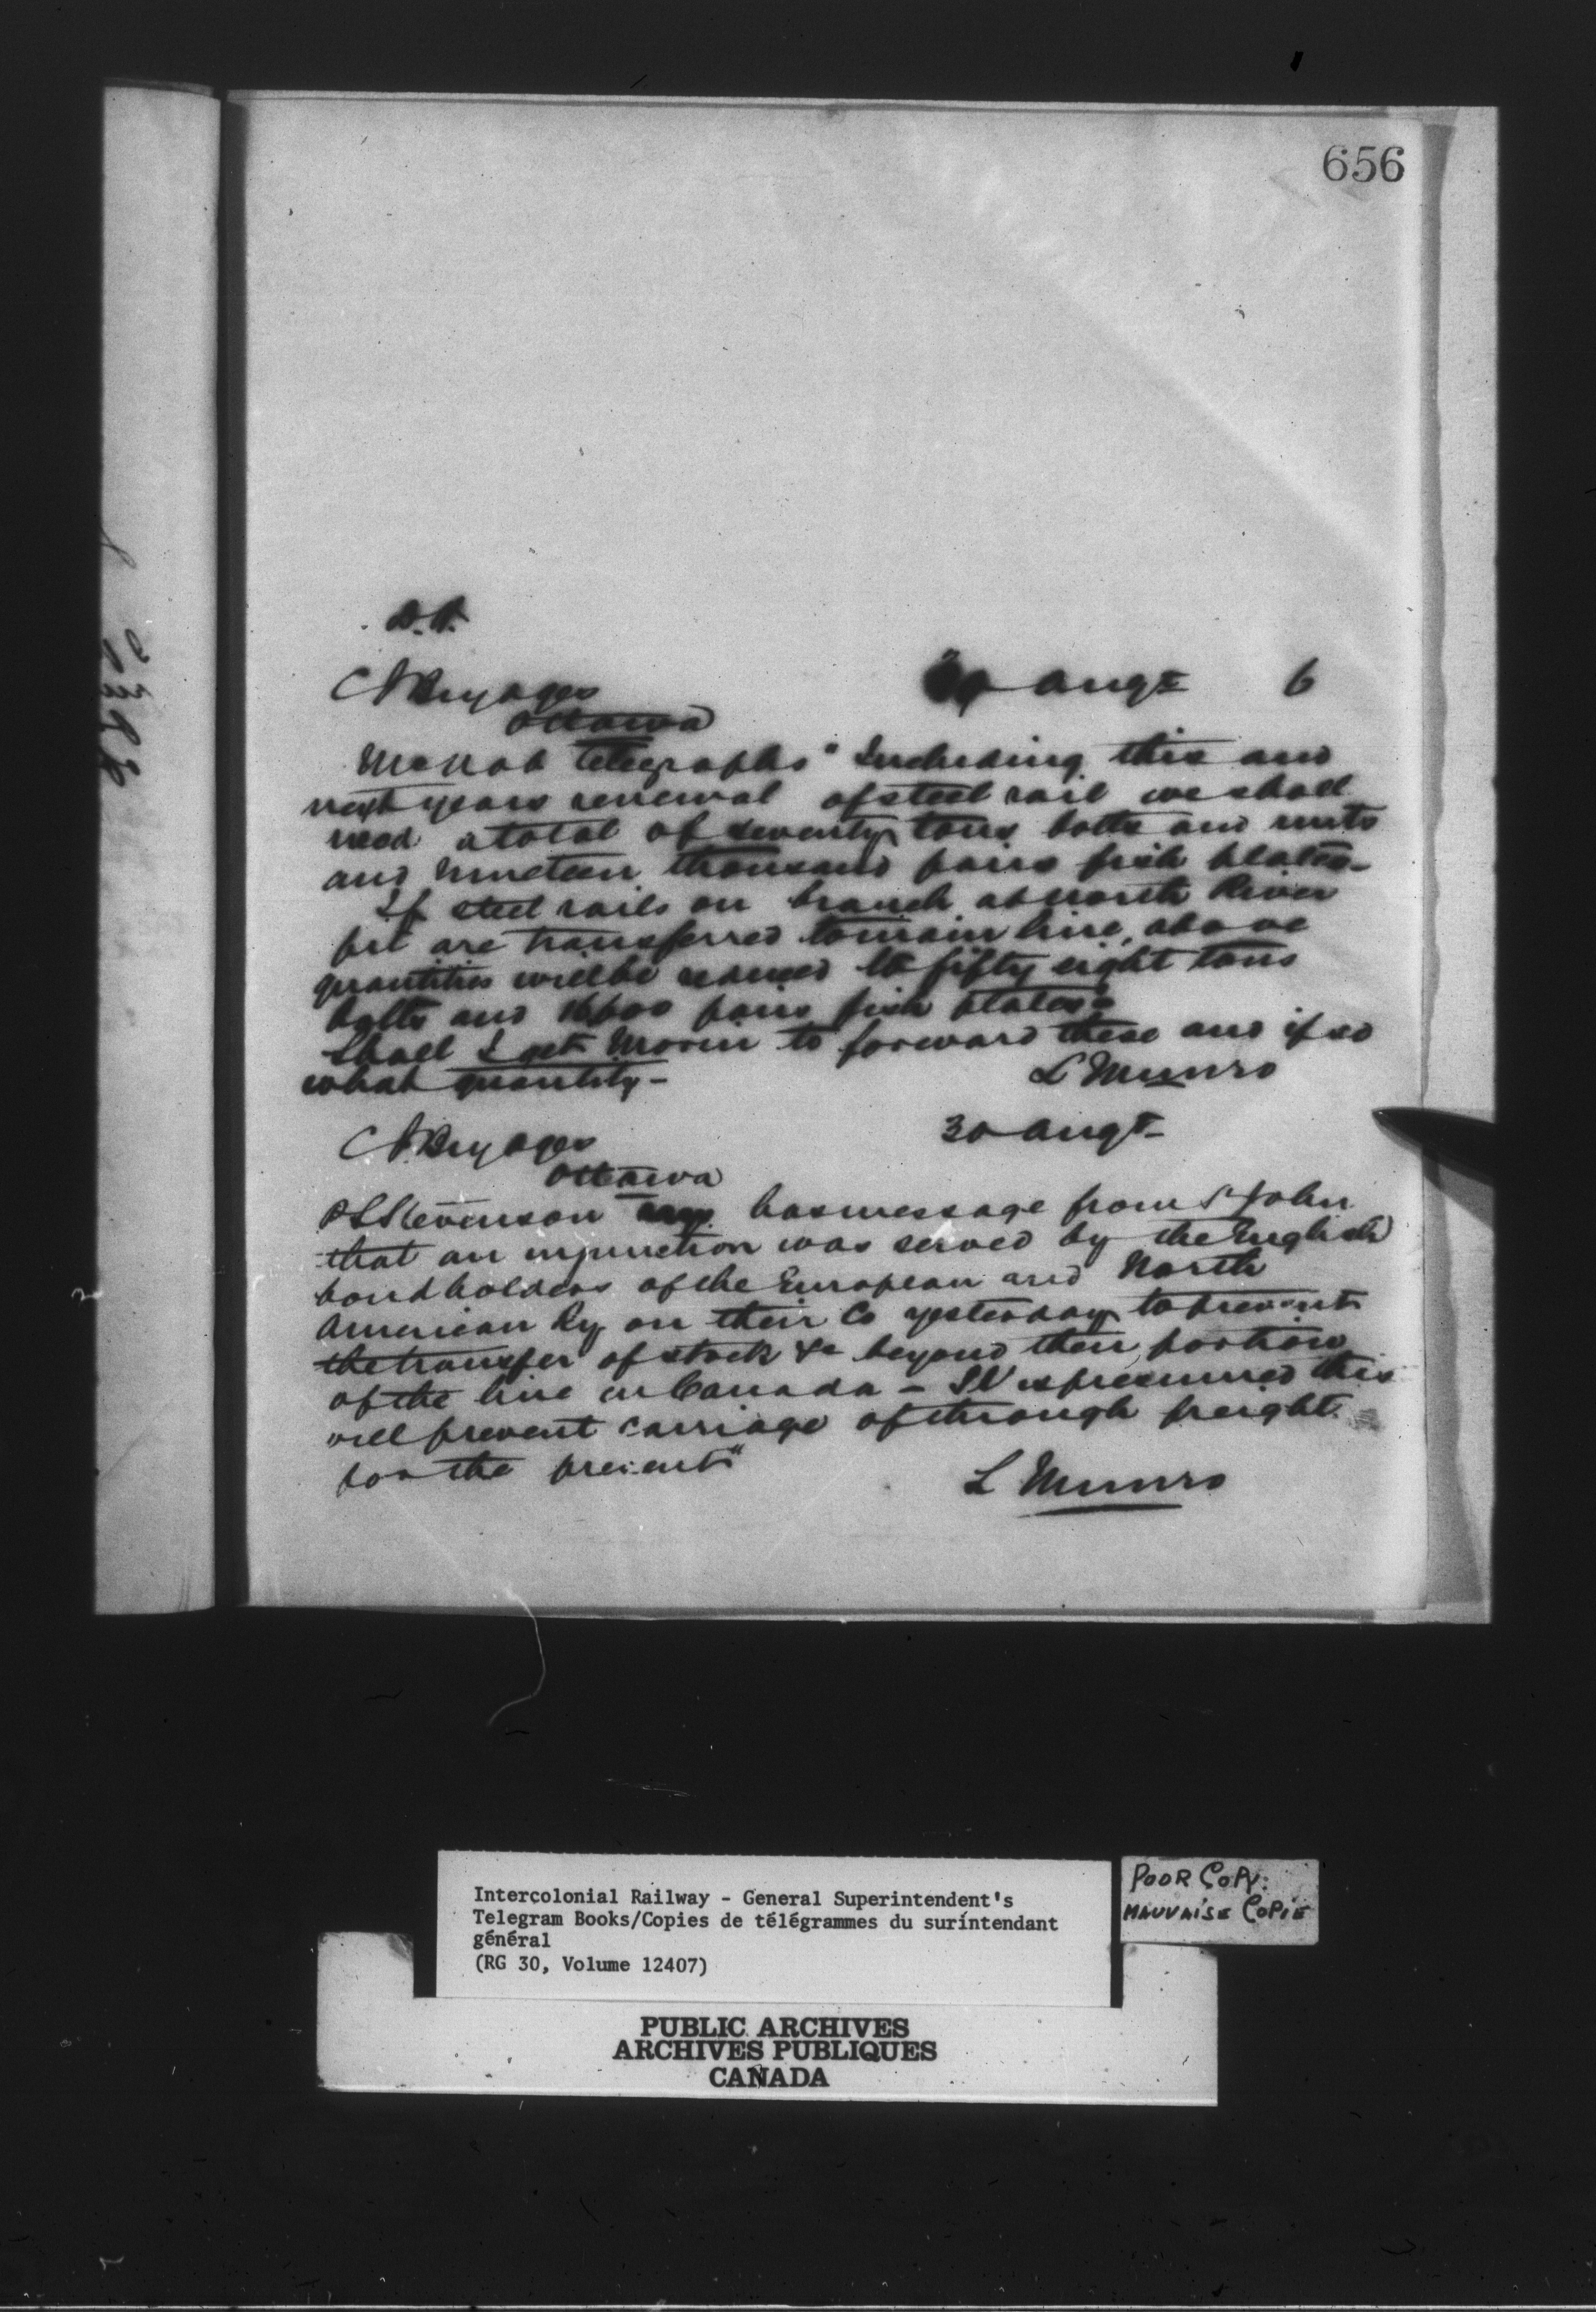 656
D.H.
C J Brydges
30 Augt 6
Ottawa
McNab telegraphs "Including this and
next years renewal of steel rail we shall
need a total of seventy tons bolts and nuts
and nineteen thousand pairs fish plates-
If steel rails on branch at North River
pit are transferred to main line, above
quantities will be reduced to fifty eight tons
bolts and 16600 pairs fish plates"
Shall I get Morin to forward these and if so
what quantity-
L Munro
C J Brydges
30 Augt-
Ottawa
Stevenson has message from St John
that an injunction was served by the English
bondholders of the European and North
American Ry on their Co yesterday to prevent
the transfer of stock &c beyond their portion
of the line in Canada - It is presumed this
will prevent carriage of through freight
for the present"
L Munro
Intercolonial Railway - General Superintendent's
Telegram Books/Copies de télégrammes du surintendant
général
(RG 30, Volume 12407)
POOR COPY.
MAUVAISE COPIE
PUBLIC ARCHIVES
ARCHIVES PUBLIQUES
CANADA